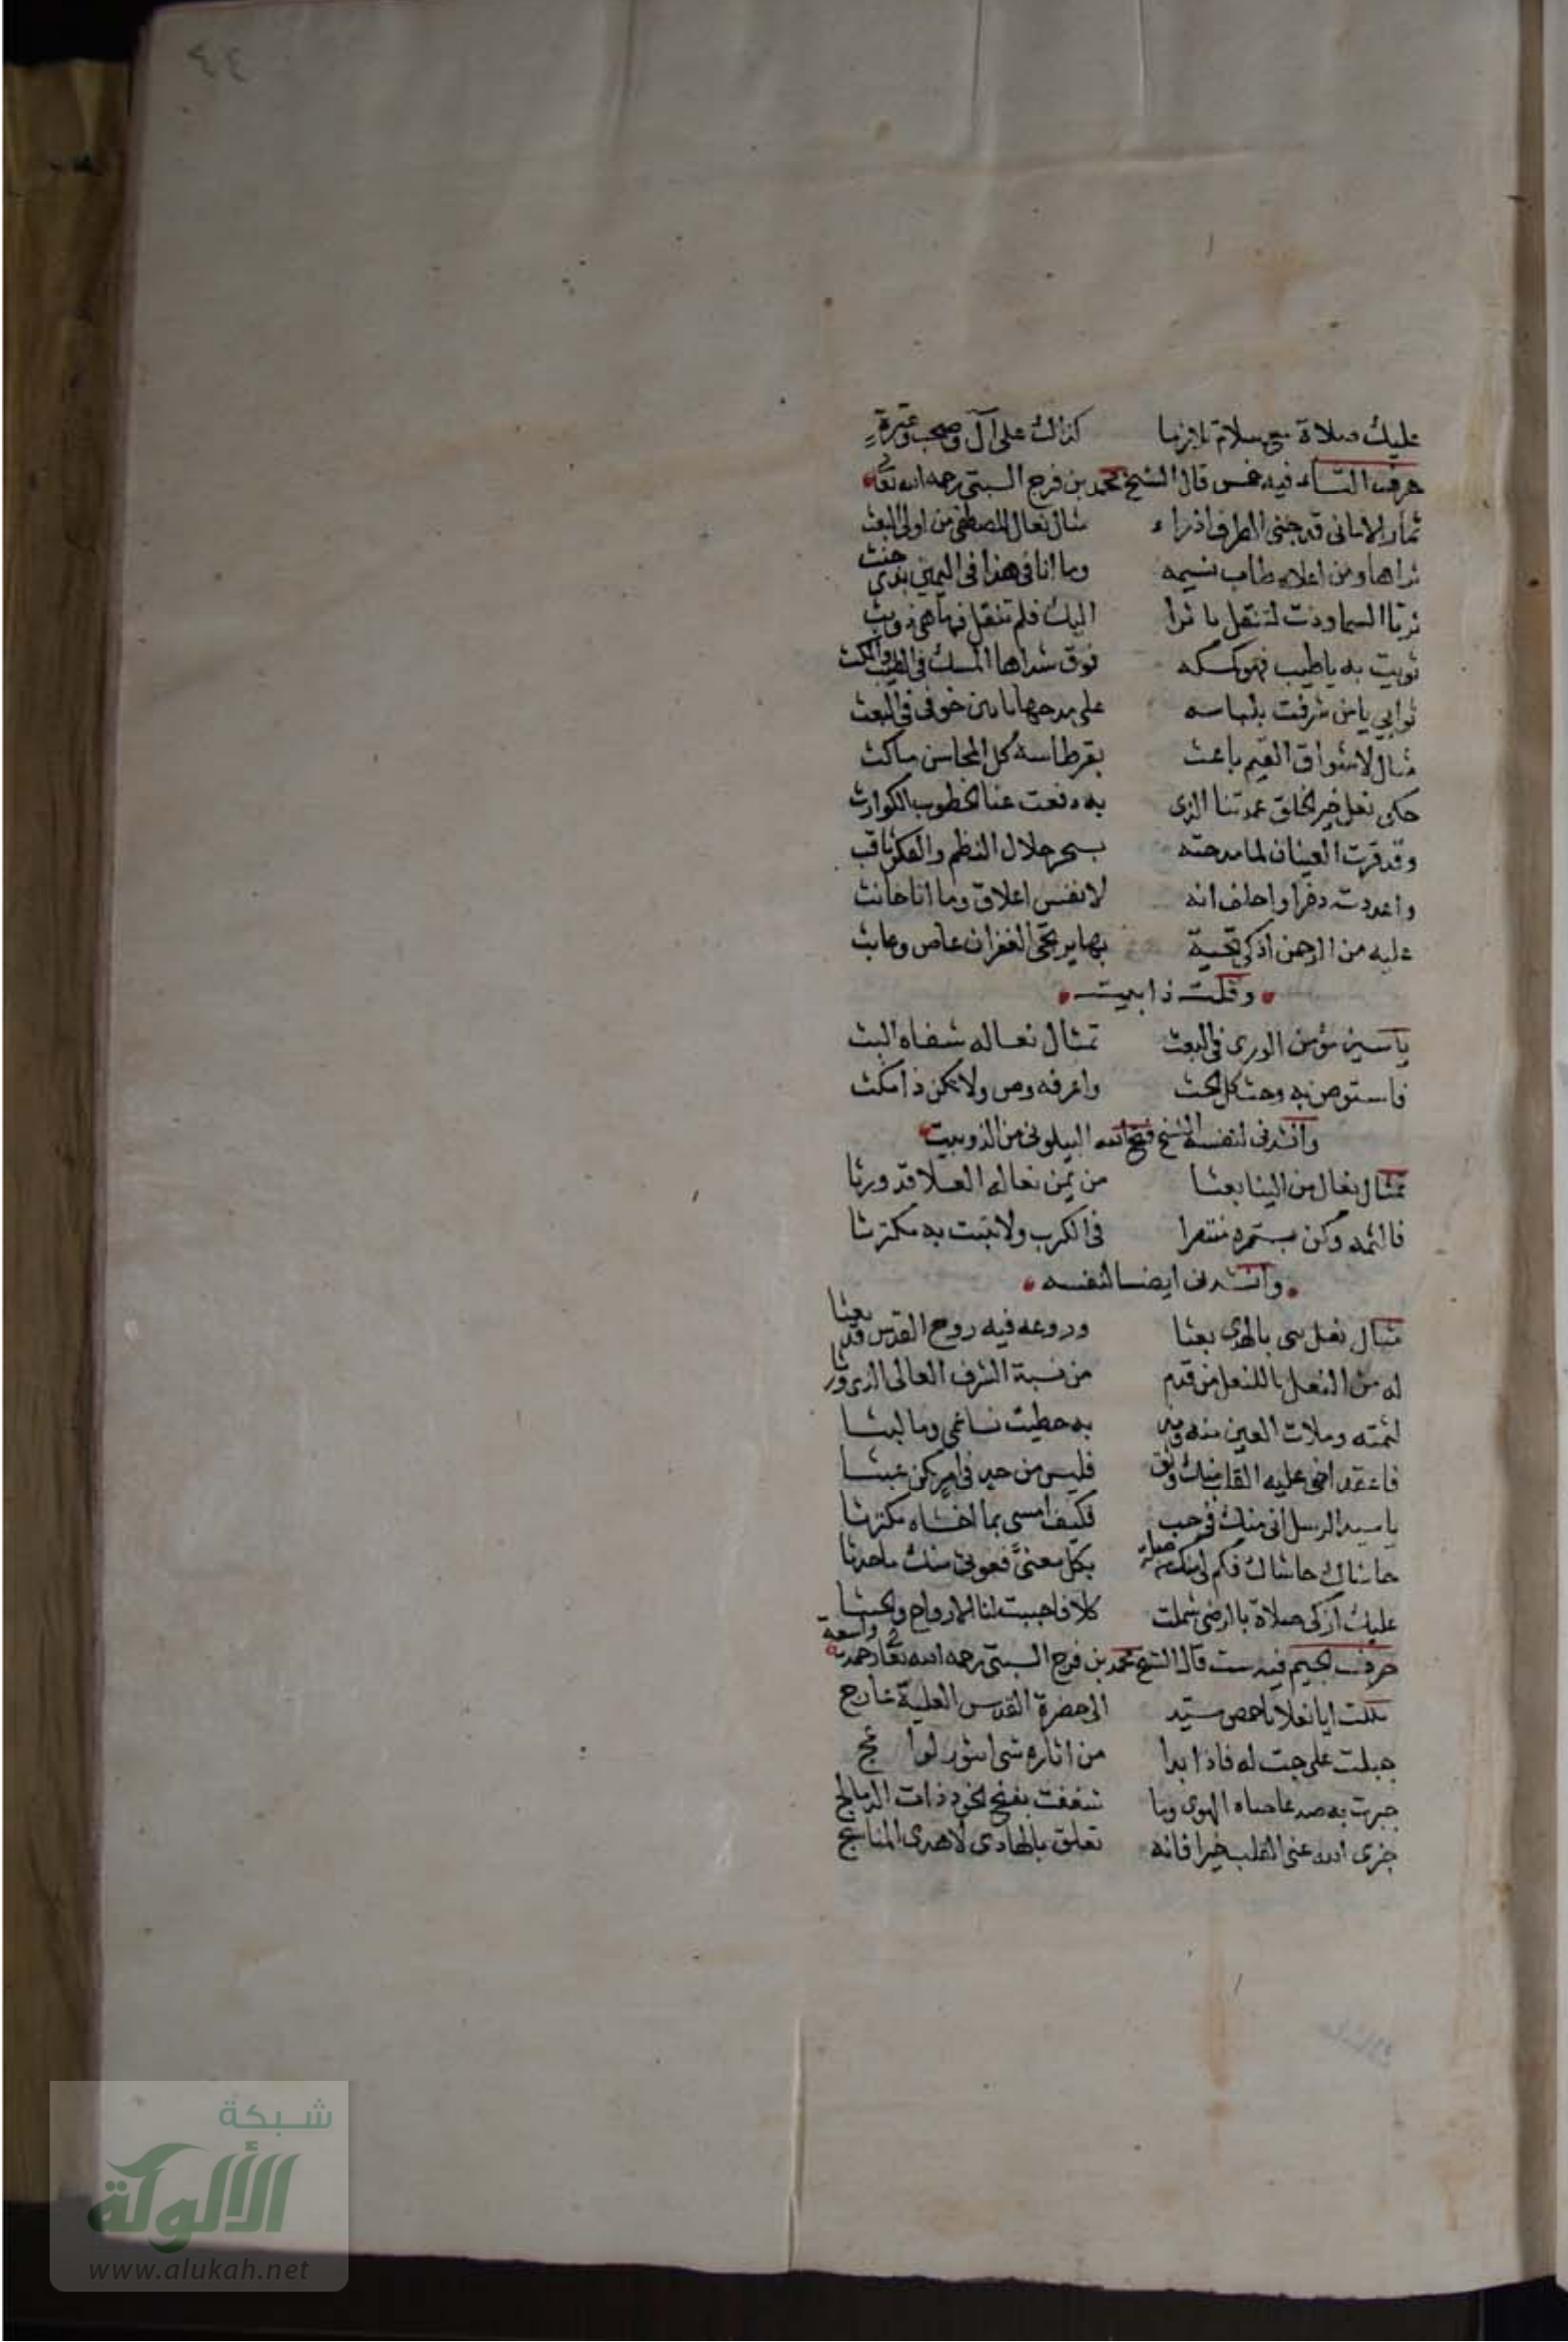 ٤٤
عليك صلاة مع سلام تلازما كذاك على آل وصحب وعترة
حرف الثاء فيه خمس قال الشيخ محمد بن فرج السبتي رحمه الله تعا
ثمار الاماني قد جنى الطرف اذراء مثال نعال المصطفى من اولى البعث
ثراها ومن اعلاه طاب نسيمه وما انا في هذا في اليمين بذى حنث
ثريا السما ودت لتنقل يا ثرا اليك فلم تنقل فها هي ذو بث
ثويت به يا طيب فهو كمسكه ففوق شذاها المسك في الطيب والمكث
ثوابي يا من شرفت بلباسه على مدحها يا من خوفى في البعث
مثال لاشواق القيم باعث بقرطاسه كل المحاسن ماكث
حكى نعل خير الخلق عمدتنا الذى به دفعت عنا الخطوب الكوارث
وقد قرت العينان لما مدحته بسحر حلال النظم والفكر نافث
واعددت ذخرا واحلف انه لانفس اعلاق وما انا حانث
عليه من الرحمن اذكى تحية بها يرتجى الغفران عاص وعابث
وقلت ذا بيت
ياسين مؤمن الورى في البعث تمثال نعاله شفاه البث
فاستوص به وحث كل الحث واعرفه وصن ولا تكن ذا مكث
وانشدني لنفسه الشيخ فتح الله البيلوني من الذوبيت
تمثال نعال من الينا بعثا من يمن نعاله العلا قد ورثا
فالثمه وكن بسمره منتصرا في الكرب ولا تبت به مكترثا
وانشدني ايضا لنفسه
مثال نعل نبي بالهدى بعثا وروعه فيه روح القدس قد بعثا
له من الفضل ما للنعل من قدم من نسبة الشرف العالى الذى ورثا
لثمته وملات العين منه وقد به حطيت ساغمى وما لبثا
فاعقد اخى عليه القلب منك وثق فليس من جد في امر كمن عبثا
يا سيد الرسل انى منك في حب فكيف امسى بما اخشاه مكترثا
حاشاك حاشاك فكم لى منك بكل معنى فعوني منك ما حدثا
عليك ازكى صلاة بالرضى شملت كلا فاحييت لنا الارواح والجثثا
حرف الجيم فيه ست قال الشيخ محمد بن فرج السبتي رحمه الله تعا رحمة واسعة
جللت ايا نعلا باخمص سيد الى حضرة القدس العلية عارج
جبلت على حب له فاذا بدا من اثاره شى اثور لواعج
جبرت به صدعا حباه الهوى وما شغفت بغنج الخود ذات الدمالج
جزى الله عنى القلب خيرا فانه تعلق بالهادى لاهدى المناهج
شبكة
الألوكة
www.alukah.net